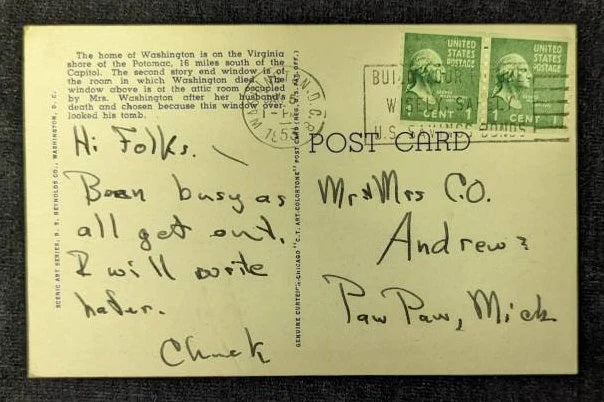 The home of Washington is on the Virginia
shore of the Potomac, 16 miles south of the
Capitol. The second story end window is of
the room in which Washington died. The
window above is of the attic room occupied
by Mrs. Washington after her husband's
death and chosen because this window over-
looked his tomb.
Hi Folks.
Been busy as
all get out.
I will write
later.
Chuck
SCENIC ART SERIES, B. S. REYNOLDS CO., WASHINGTON, D. C.
GENUINE CURTEICH-CHICAGO "C.T. ART-COLORTONE" POST CARD (REG. U.S. PAT. OFF.)
D.C.
1953
UNITED
STATES
POSTAGE
1 CENT 1
UNITED
STATES
POSTAGE
1 CENT 1
U.S. SAVINGS BONDS
POST CARD
Mr & Mrs C.O.
Andrews
Paw Paw, Mich